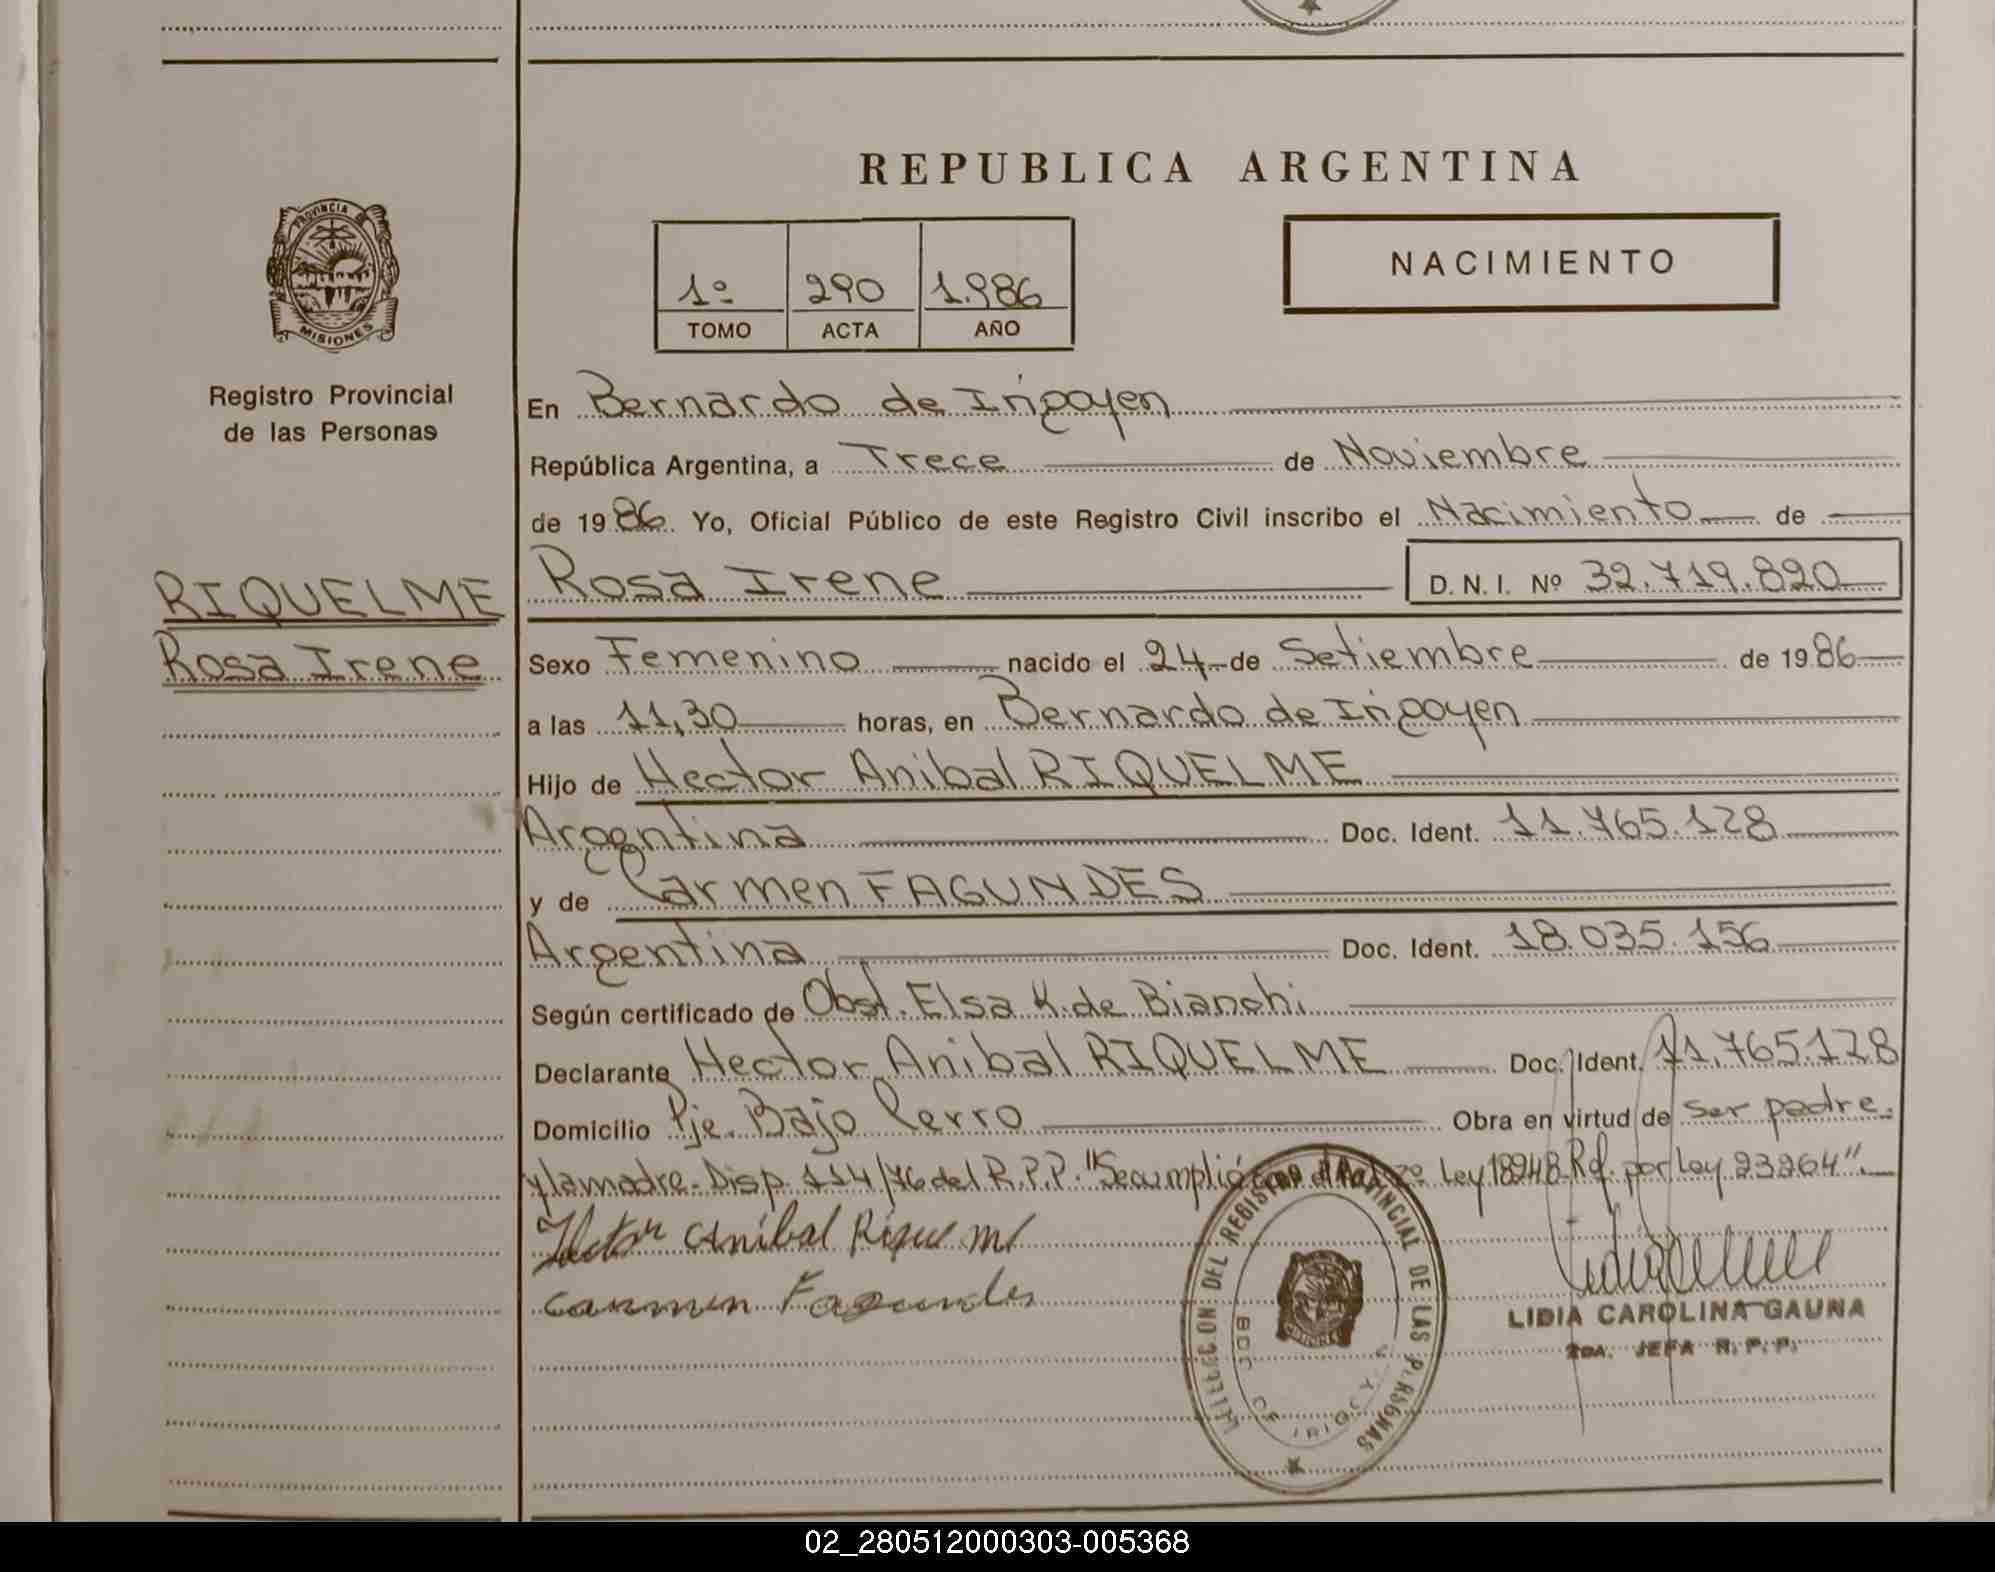 REPUBLICA ARGENTINA
PROVINCIA DE
MISIONES
Registro Provincial
de las Personas
1º 290 1.986
TOMO ACTA AÑO
NACIMIENTO
En Bernardo de Irigoyen
República Argentina, a Trece de Noviembre
de 1986. Yo, Oficial Público de este Registro Civil inscribo el Nacimiento de
RIQUELME
Rosa Irene
Rosa Irene D.N.I. Nº 32.719.820
Sexo Femenino nacido el 24 de Setiembre de 1986
a las 11,30 horas, en Bernardo de Irigoyen
Hijo de Hector Anibal RIQUELME
Argentina Doc. Ident. 11.765.128
y de Carmen FAGUNDES
Argentina Doc. Ident. 18.035.156
Según certificado de Obst. Elsa K. de Bianchi
Declarante Hector Anibal RIQUELME Doc. Ident. 11.765.128
Domicilio Pje. Bajo Cerro Obra en virtud de ser padre.
y la madre. Disp. 114/76 del R.P.P. "Se cumplió con el Ley 18248 Ref. por Ley 23264".
Hector Anibal Riquelme
Carmen Fagundes
DIRECCION DEL REGISTRO PROVINCIAL DE LAS PERSONAS
BDO DE IRIGOYEN
LIDIA CAROLINA GAUNA
2DA. JEFA R.P.P.
02_280512000303-005368